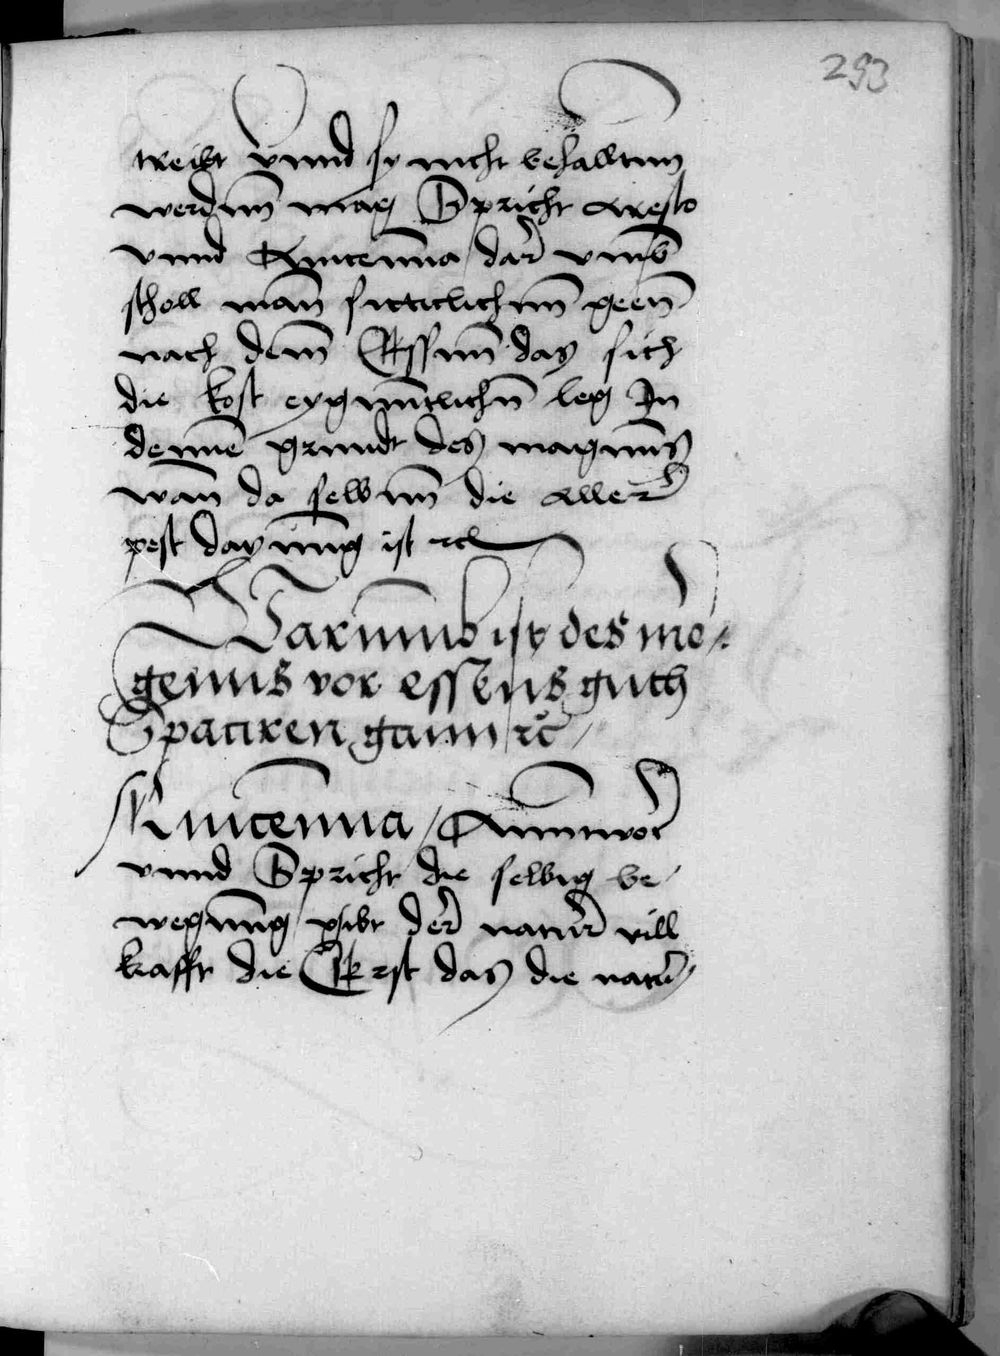 293
treibt vnnd sy nicht behalltnn
werdnn mag Spricht Aresto
vnnd Auicenna / dar vmb
scholl man sittlichnn geen
nach dem Essnn das sich
die kost eygnntlichn leg In
denne grundt des magnns
wan da selbnn die aller
pest dayunng ist etc
Warumb ist des mo/
genns vor essens guth
Spaciren gann etc /
Auicenna / Anntwort
vnnd Spricht die selbig be/
wegunng / gibt der natur vill
krafft die Erst das die natur